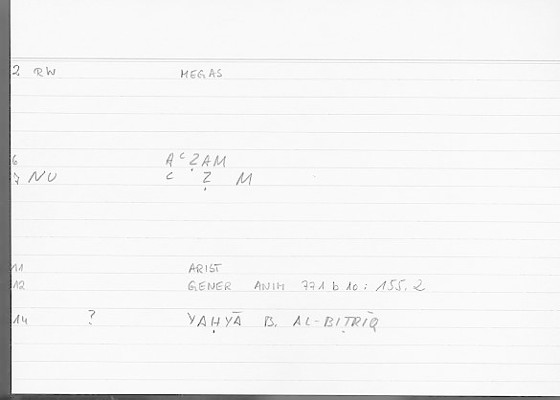 2 RW MEGAS
6 AᶜẒAM
7 NU ᶜ Ẓ M
11 ARIST
12 GENER ANIM 771 b 10 : 155.2
14 ? YAḤYĀ B. AL-BIṬRĪQ